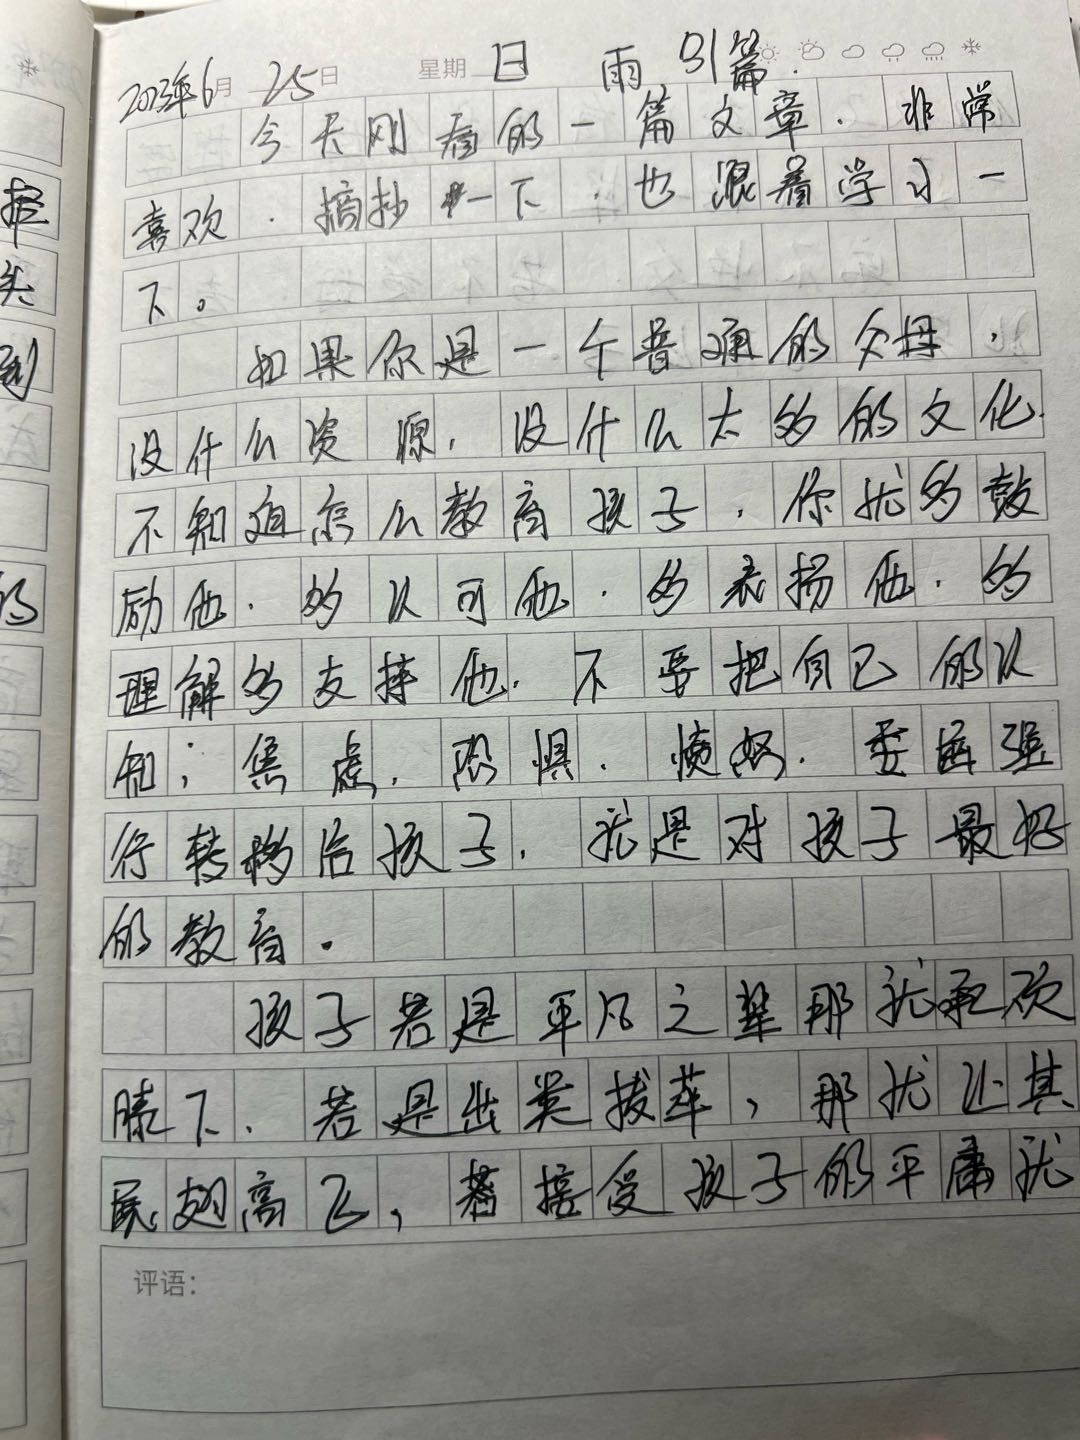 2023年6月25日 星期日 雨 91篇.
今天刚看的一篇文章.非常
喜欢.摘抄一下.也跟着学习一
下。
如果你是一个普通的父母,
没什么资源,没什么太多的文化.
不知道怎么教育孩子,你就多鼓
励他.多认可他.多表扬他.多
理解多支持他.不要把自己的认
知;焦虑,恐惧.愤怒.委屈强
行转移给孩子,就是对孩子最好
的教育.
孩子若是平凡之辈那就承欢
膝下.若是出类拔萃,那就让其
展翅高飞,若接受孩子的平庸就
评语: